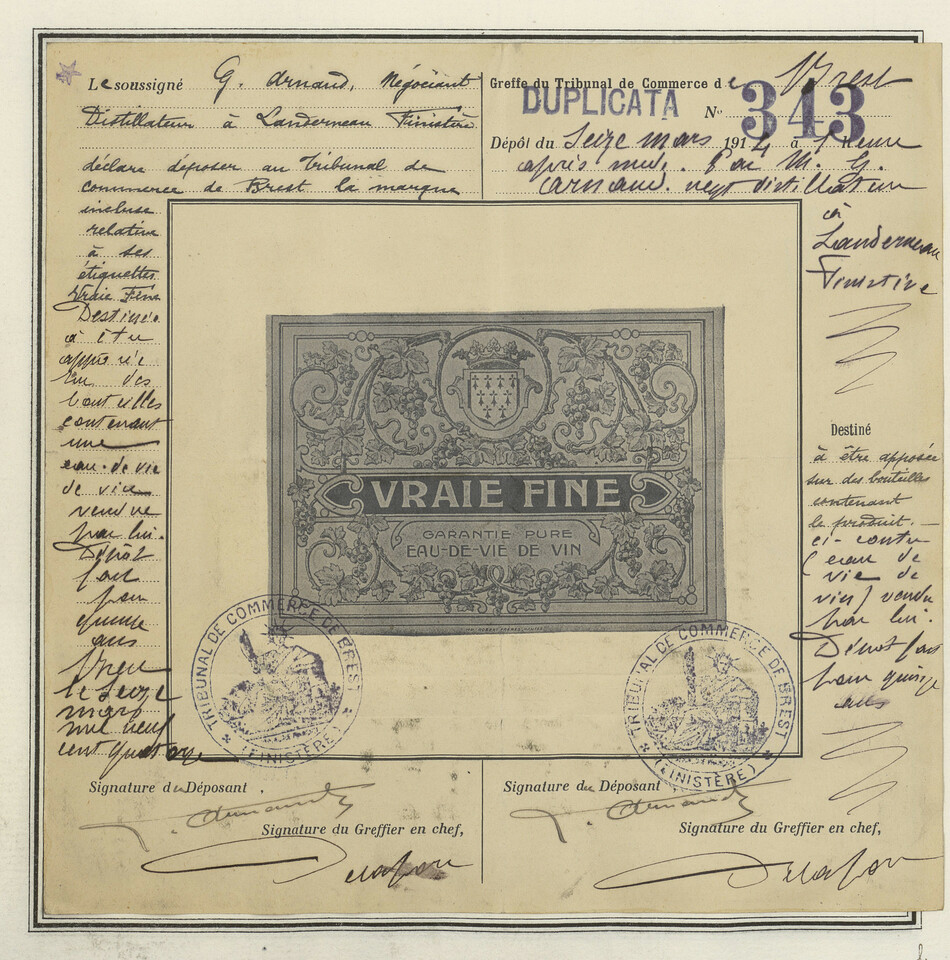 Le soussigné G. Arnaud, Négociant
Distillateur à Landerneau Finistère
déclare déposer au Tribunal de
commerce de Brest la marque
incluse
relative
à ses
étiquettes
Vraie Fine
Destinée
à être
apposée
sur des
bouteilles
contenant
une
eau-de-vie
de vin
vendue
par lui.
Dépôt
fait
pour
quinze
ans
Brest
le seize
mars
mil neuf
cent quatorze
Greffe du Tribunal de Commerce de Brest
DUPLICATA
N° 343
Dépôt du Seize mars 1914 à 1 heure
après midi. Par M. G.
Arnaud. negt distillateur
à
Landerneau
Finistère
Destiné
à être apposée
sur des bouteilles
contenant
le produit. —
ci-contre
(eau de
vie de
vin) vendu
par lui.
Dépôt fait
pour quinze
ans
VRAIE FINE
GARANTIE PURE
EAU-DE-VIE DE VIN
TRIBUNAL DE COMMERCE DE BREST
(FINISTÈRE)
TRIBUNAL DE COMMERCE DE BREST
(FINISTÈRE)
Signature du Déposant
G. Arnaud
Signature du Greffier en chef,
Signature du Déposant
G. Arnaud
Signature du Greffier en chef,